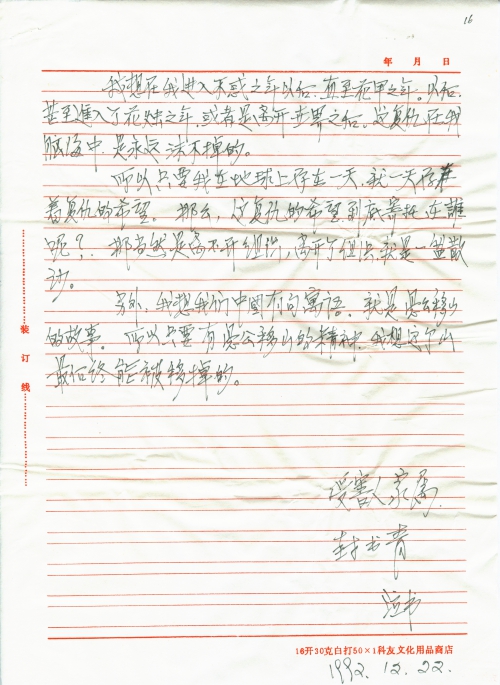 16
年 月 日
我想在我进入不惑之年以后,直至花甲之年。以后,
甚至進入了花独之年,或者是离开世界之后,这复仇在我
脑海中是永远抹不掉的。
所以只要我在地球上存在一天,就一天存在
着复仇的希望。那么,这复仇的希望到底寄托在誰
呢?那当然是离不开组织,离开了组织,我是一盘散
沙。
另外,我想我们中國有句寓语,就是愚公移山
的故事。所以只要有愚公移山的精神,我想这个山
最后终能被移掉的。
装订线
受害人家属
封书青
16开30克白打50×1科友文化用品商店
1992.12.22.